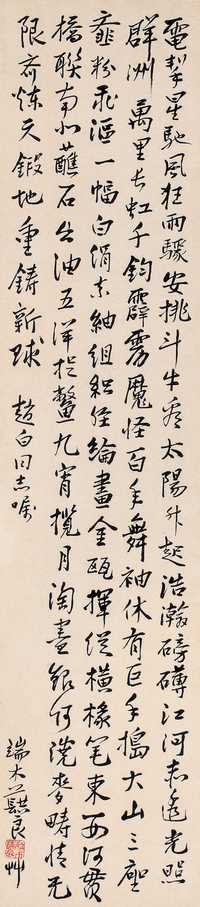 電掣星馳風狂雨驟安排斗牛看太陽升起浩瀚磅礴江河赤遍光照
群洲萬里長虹千鈞霹靂魔怪百年舞袖休有巨手搗大山三座
齏粉飛漚一幅白絹素紬組織經綸畫金甌揮縱橫椽筆東西河貫
橋聯南北蘸石出油五洋捉鱉九霄攬月淘盡銀河澆麥疇情無
限看煉天鍛地重鑄新球 超白同志囑
端木蕻良艸